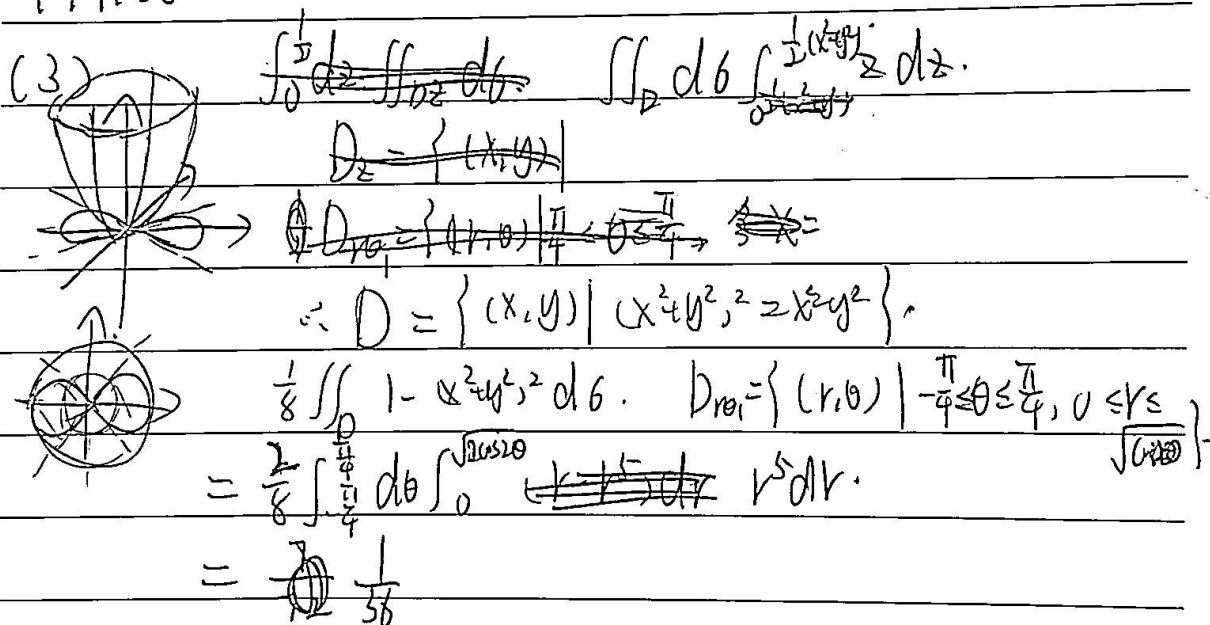 (3) ∬_D dσ ∫_0^{½(x²+y²)} z dz.
∴ D = { (x, y) | (x²+y²)² = x²-y² }.
⅛ ∬_D 1 - (x²+y²)² dσ. D_{rθ₁} = { (r, θ) | -π/4 ≤ θ ≤ π/4, 0 ≤ r ≤ √(cos2θ) }.
= 2/8 ∫_{-π/4}^{π/4} dθ ∫_0^{√(cos2θ)} r⁵ dr.
= 1/36